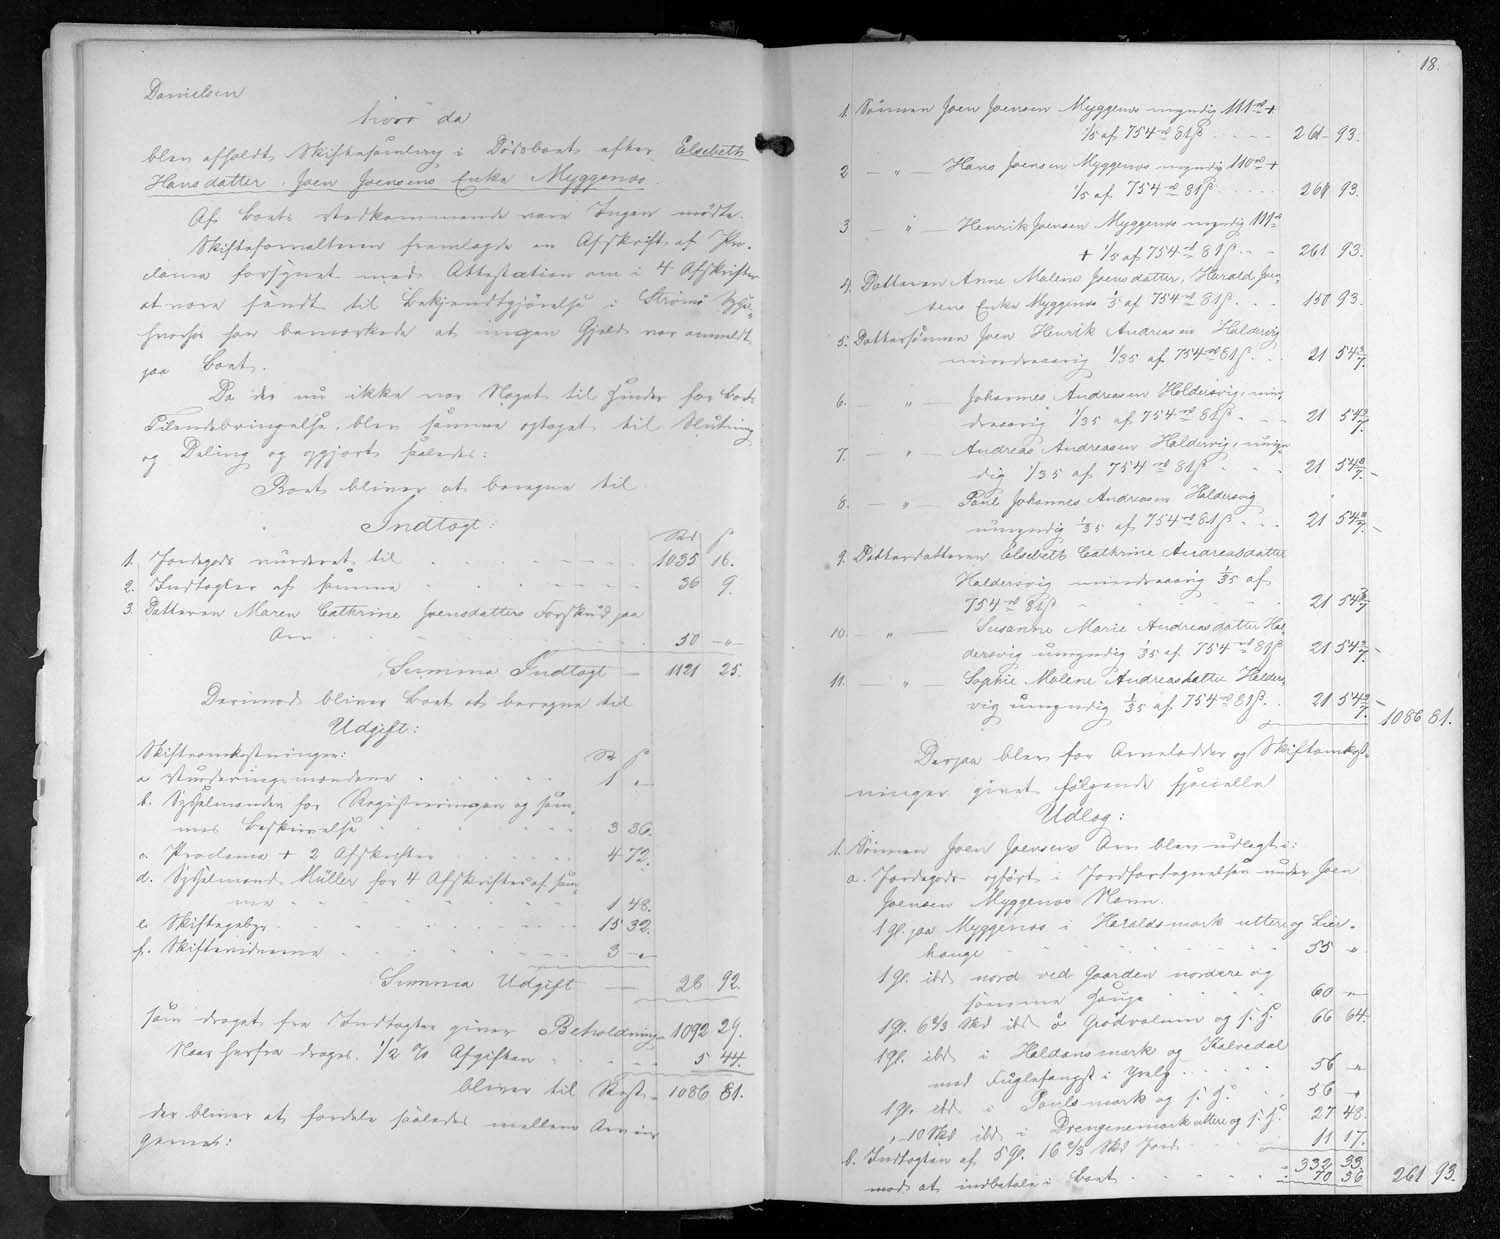 Danielsen
hvor da
blev afholdt Skiftesamling i Dødsboet efter Elsebeth
Hansdatter, Joen Joensens Enke Myggenæs.
Af Boets Vedkommende vare Ingen mødte.
Skifteforvalteren fremlagde en Afskrift af Pro-
clama forsynet med Attestation om i 4 Afskrifter
at være sendt til Bekjendtgjörelse i Strömö Syssel
hvorhos han bemærkede at ingen Gjæld var anmeldt
paa Boet.
Da der nu ikke var Noget til Hinder for Boets
Tilendebringelse, blev samme optaget til Slutning
og Deling og opgjort saaledes:
Boet bliver at beregne til
Indtægt:
Rd β
1. Jordegods vurderet til 1035 16.
2. Indtægter af samme 36 9.
3. Datteren Maren Cathrine Joensdatters Forskud paa
Arv 50 -"-
Summa Indtægt — 1121 25.
Derimod bliver Boet at beregne til
Udgift:
Skifteomkostninger: Rd β
a Vurderingsmændene 1 "
b. Sysselmanden for Registreringen og sam-
mes Beskrivelse 3 36.
c. Proclama + 2 Afskrifter 4 72.
d. Sysselmand Müller for 4 Afskrifter af sam-
me 1 48.
e. Skiftegebyr 15 32.
f. Skiftevidnerne 3 -"-
Summa Udgift — 28 92.
som draget fra Indtægten giver Beholdning 1092 29.
Naar herfra drages 1/2 % Afgiften 5 44.
bliver til Rest 1086 81.
der bliver at fordele saaledes mellem Arvin-
gerne:
18.
1. Sönnen Joen Joensen Myggenæs myndig 111 rd +
1/5 af 754 rd 81 β 261 93.
2 — " — Hans Joensen Myggenæs myndig 110 rd +
1/5 af 754 rd 81 β 261 93.
3 — " — Henrik Joensen Myggenæs myndig 111 rd
+ 1/5 af 754 rd 81 β 261 93.
4. Datteren Anne Malene Joensdatter, Harald Joen-
sens Enke Myggenæs 1/5 af 754 rd 81 β 150 93.
5. Dattersönnen Joen Henrik Andreasen Haldersvig
mindreaarig 1/35 af 754 rd 81 β 21 54 3/7.
6. — " — Johannes Andreasen Haldersvig, min-
dreaarig 1/35 af 754 rd 81 β 21 54 3/7.
7. — " — Andreas Andreasen Haldersvig, umyn-
dig 1/35 af 754 rd 81 β 21 54 3/7.
8. — " — Poul Johannes Andreasen Haldersvig
umyndig 1/35 af 754 rd 81 β 21 54 3/7.
9. Datterdatteren Elsebeth Cathrine Andreasdatter
Haldersvig mindreaarig 1/35 af
754 rd 81 β 21 54 3/7
10. — " — Susanne Marie Andreasdatter Hal-
dersvig umyndig 1/35 af 754 rd 81 β 21 54 3/7.
11. — " — Sophie Malene Andreasdatter Halders-
vig umyndig 1/35 af 754 rd 81 β. 21 54 3/7. 1086 81.
Derpaa blev for Arvelodder og Skifteomkost-
ninger givet fölgende specielle
Udlæg:
1. Sönnen Joen Joensens Arv blev udlagt i:
a. Jordegods opfört i Jordfortegnelsen under Joen
Joensen Myggenæs Navn.
1 Gl. paa Myggenæs i Haraldsmark uttere og Lier-
hauge 55 "
1 Gl. ibd. nord ved Gaarden nordere og
samme Hauge 60 -"-
1 Gl. 6 2/3 Skd ibd. å Grödvolum og s. H. 66 64.
1 Gl. ibd. i Haldansmark og Kalvedal
med Fuglefangst i 56 -"-
1 Gl. ibd. i Poulsmark og s. H. 56 -"-
" 10 Skd ibd. i Drengenemark uttere og s. H. 27 48.
b. Indtægten af 5 Gl. 16 2/3 Skd Jord 11 17.
332 33.
mod at indbetale i Boet 70 36 261 93.